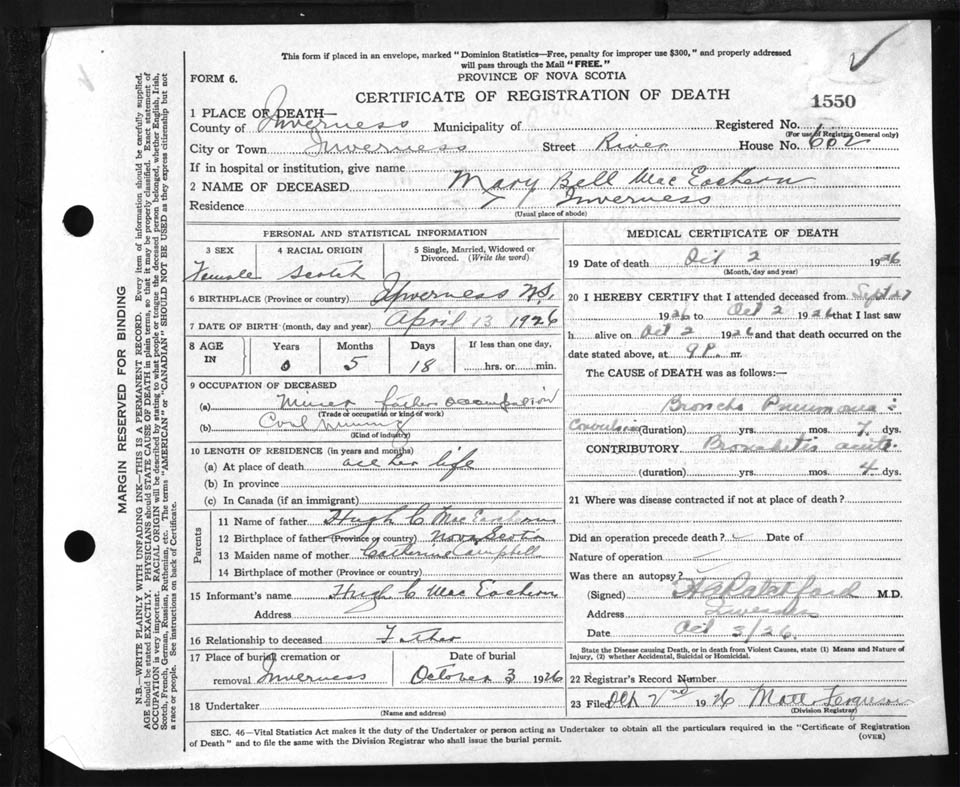 This form if placed in an envelope, marked "Dominion Statistics—Free, penalty for improper use $300," and properly addressed
will pass through the Mail "FREE."
FORM 6.
PROVINCE OF NOVA SCOTIA
CERTIFICATE OF REGISTRATION OF DEATH
1550
1 PLACE OF DEATH—
County of Inverness Municipality of
Registered No.
(For use of Registrar General only)
City or Town Inverness Street River House No. 602
If in hospital or institution, give name
2 NAME OF DECEASED Mary Bell Mac Eachern
Residence Inverness
(Usual place of abode)
PERSONAL AND STATISTICAL INFORMATION
3 SEX 4 RACIAL ORIGIN 5 Single, Married, Widowed or Divorced. (Write the word)
Female Scotch
6 BIRTHPLACE (Province or country) Inverness N.S.
7 DATE OF BIRTH (month, day and year) April 13 1926
8 AGE IN Years Months Days If less than one day,
0 5 18 hrs. or min.
9 OCCUPATION OF DECEASED
(a) Miner father occupation
(Trade or occupation or kind of work)
(b) Coal mining
(Kind of industry)
10 LENGTH OF RESIDENCE (in years and months)
(a) At place of death all her life
(b) In province
(c) In Canada (if an immigrant)
Parents
11 Name of father Hugh C Mac Eachern
12 Birthplace of father (Province or country) Nova Scotia
13 Maiden name of mother Catherine Campbell
14 Birthplace of mother (Province or country)
15 Informant's name Hugh C Mac Eachern
Address
16 Relationship to deceased Father
17 Place of burial, cremation or removal Inverness
Date of burial
October 3 1926
18 Undertaker
(Name and address)
MEDICAL CERTIFICATE OF DEATH
19 Date of death Oct 2 1926
(Month, day and year)
20 I HEREBY CERTIFY that I attended deceased from Sept 27
1926 to Oct 2 1926 that I last saw
h alive on Oct 2 1926 and that death occurred on
date stated above, at 9 P. m.
The CAUSE of DEATH was as follows:—
Broncho Pneumonia :
Convulsions (duration) yrs. mos. 7 dys.
CONTRIBUTORY Bronchitis acute.
(duration) yrs. mos. 4 dys.
21 Where was disease contracted if not at place of death?
Did an operation precede death? Date of
Nature of operation
Was there an autopsy?
(Signed) M.D.
Address Inverness
Date Oct 3/26.
State the Disease causing Death, or in death from Violent Causes, state (1) Means and Nature of
Injury, (2) whether Accidental, Suicidal or Homicidal.
22 Registrar's Record Number
23 Filed Oct 2nd 1926 Matt Ferguson
(Division Registrar)
SEC. 46—Vital Statistics Act makes it the duty of the Undertaker or person acting as Undertaker to obtain all the particulars required in the "Certificate of Registration
of Death" and to file the same with the Division Registrar who shall issue the burial permit.
(OVER)
MARGIN RESERVED FOR BINDING
N.B.—WRITE PLAINLY WITH UNFADING INK—THIS IS A PERMANENT RECORD. Every item of information should be carefully supplied.
AGE should be stated EXACTLY. PHYSICIANS should STATE CAUSE OF DEATH in plain terms, so that it may be properly classified. Exact statement of
OCCUPATION is very important. RACIAL ORIGIN will be described by stating to what people or tongue the deceased person belonged, whether English, Irish,
Scotch, French, German, Russian, Ruthenian, etc. The terms "AMERICAN" or "CANADIAN" SHOULD NOT BE USED as they express citizenship but not
a race or people. See instructions on back of Certificate.